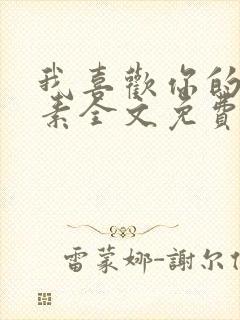 我喜歡你的
素全文免費
雷蒙娜-謝尔